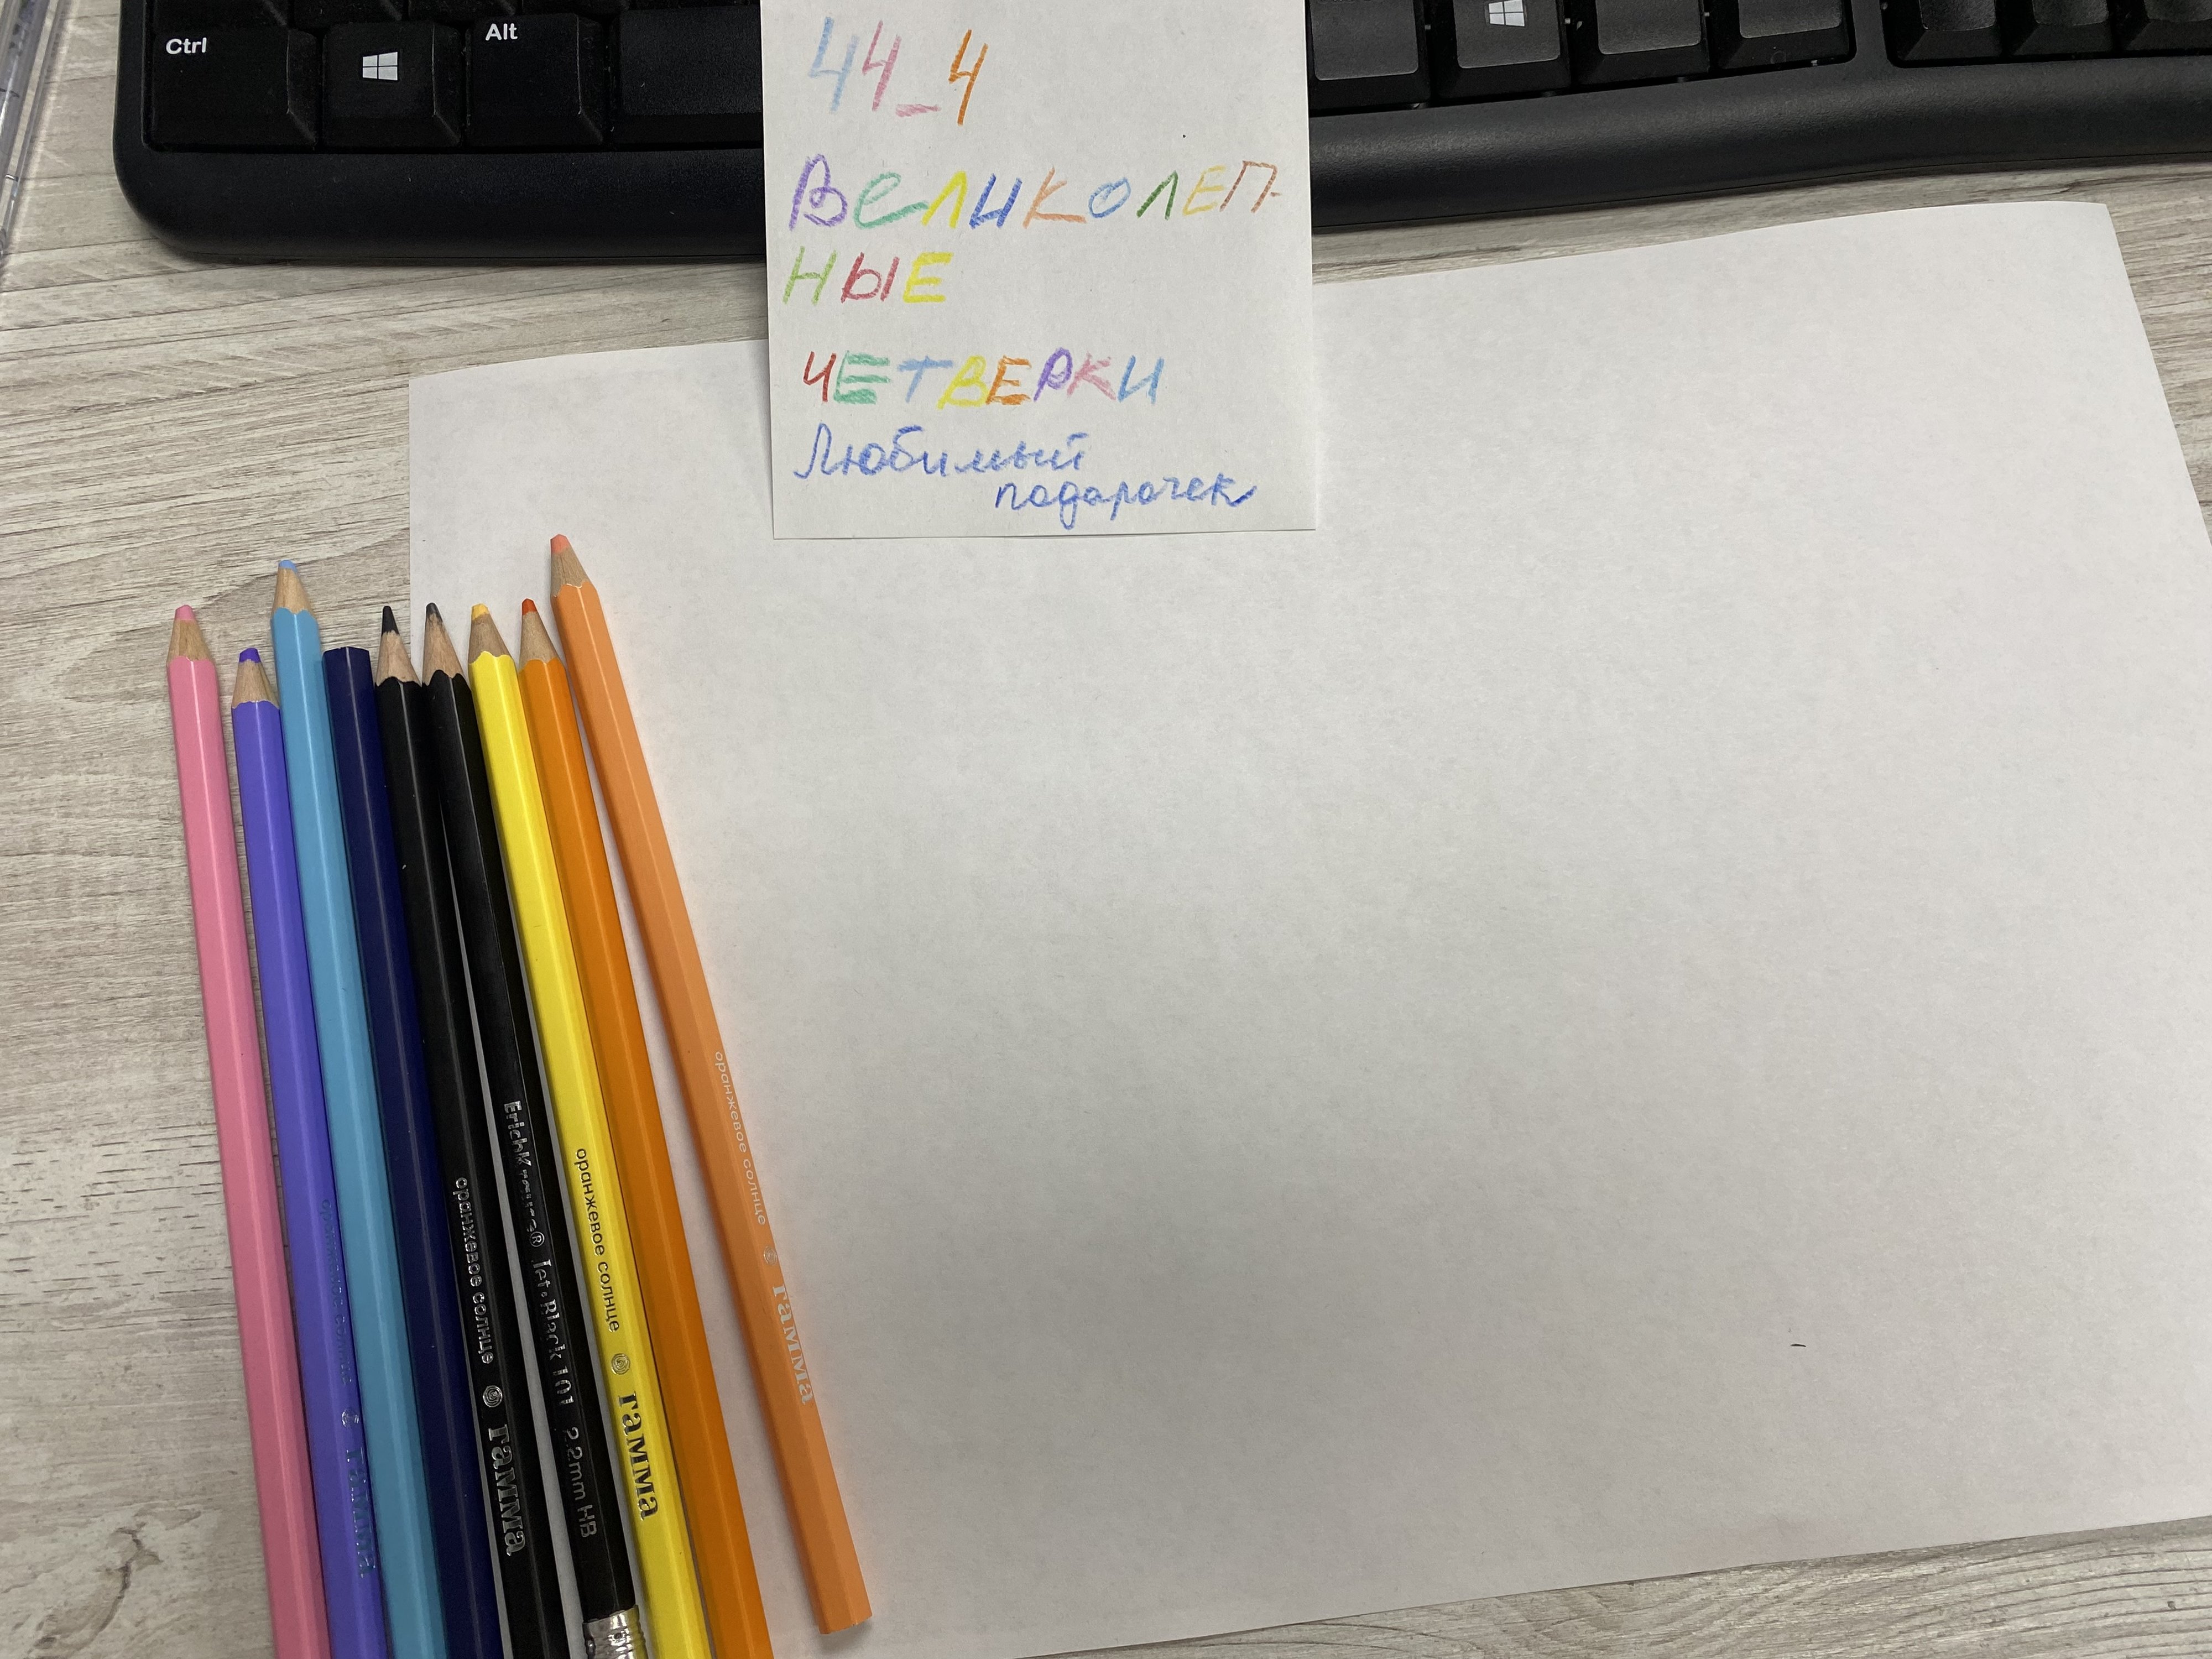 Ctrl
Alt
44_4
ВЕЛИКОЛЕП-
НЫЕ
ЧЕТВЕРКИ
Любимый
подарочек
гамма
оранжевое солнце гамма
ErichKrause® Jet-Black 101 2.2mm HB
оранжевое солнце гамма
оранжевое солнце гамма